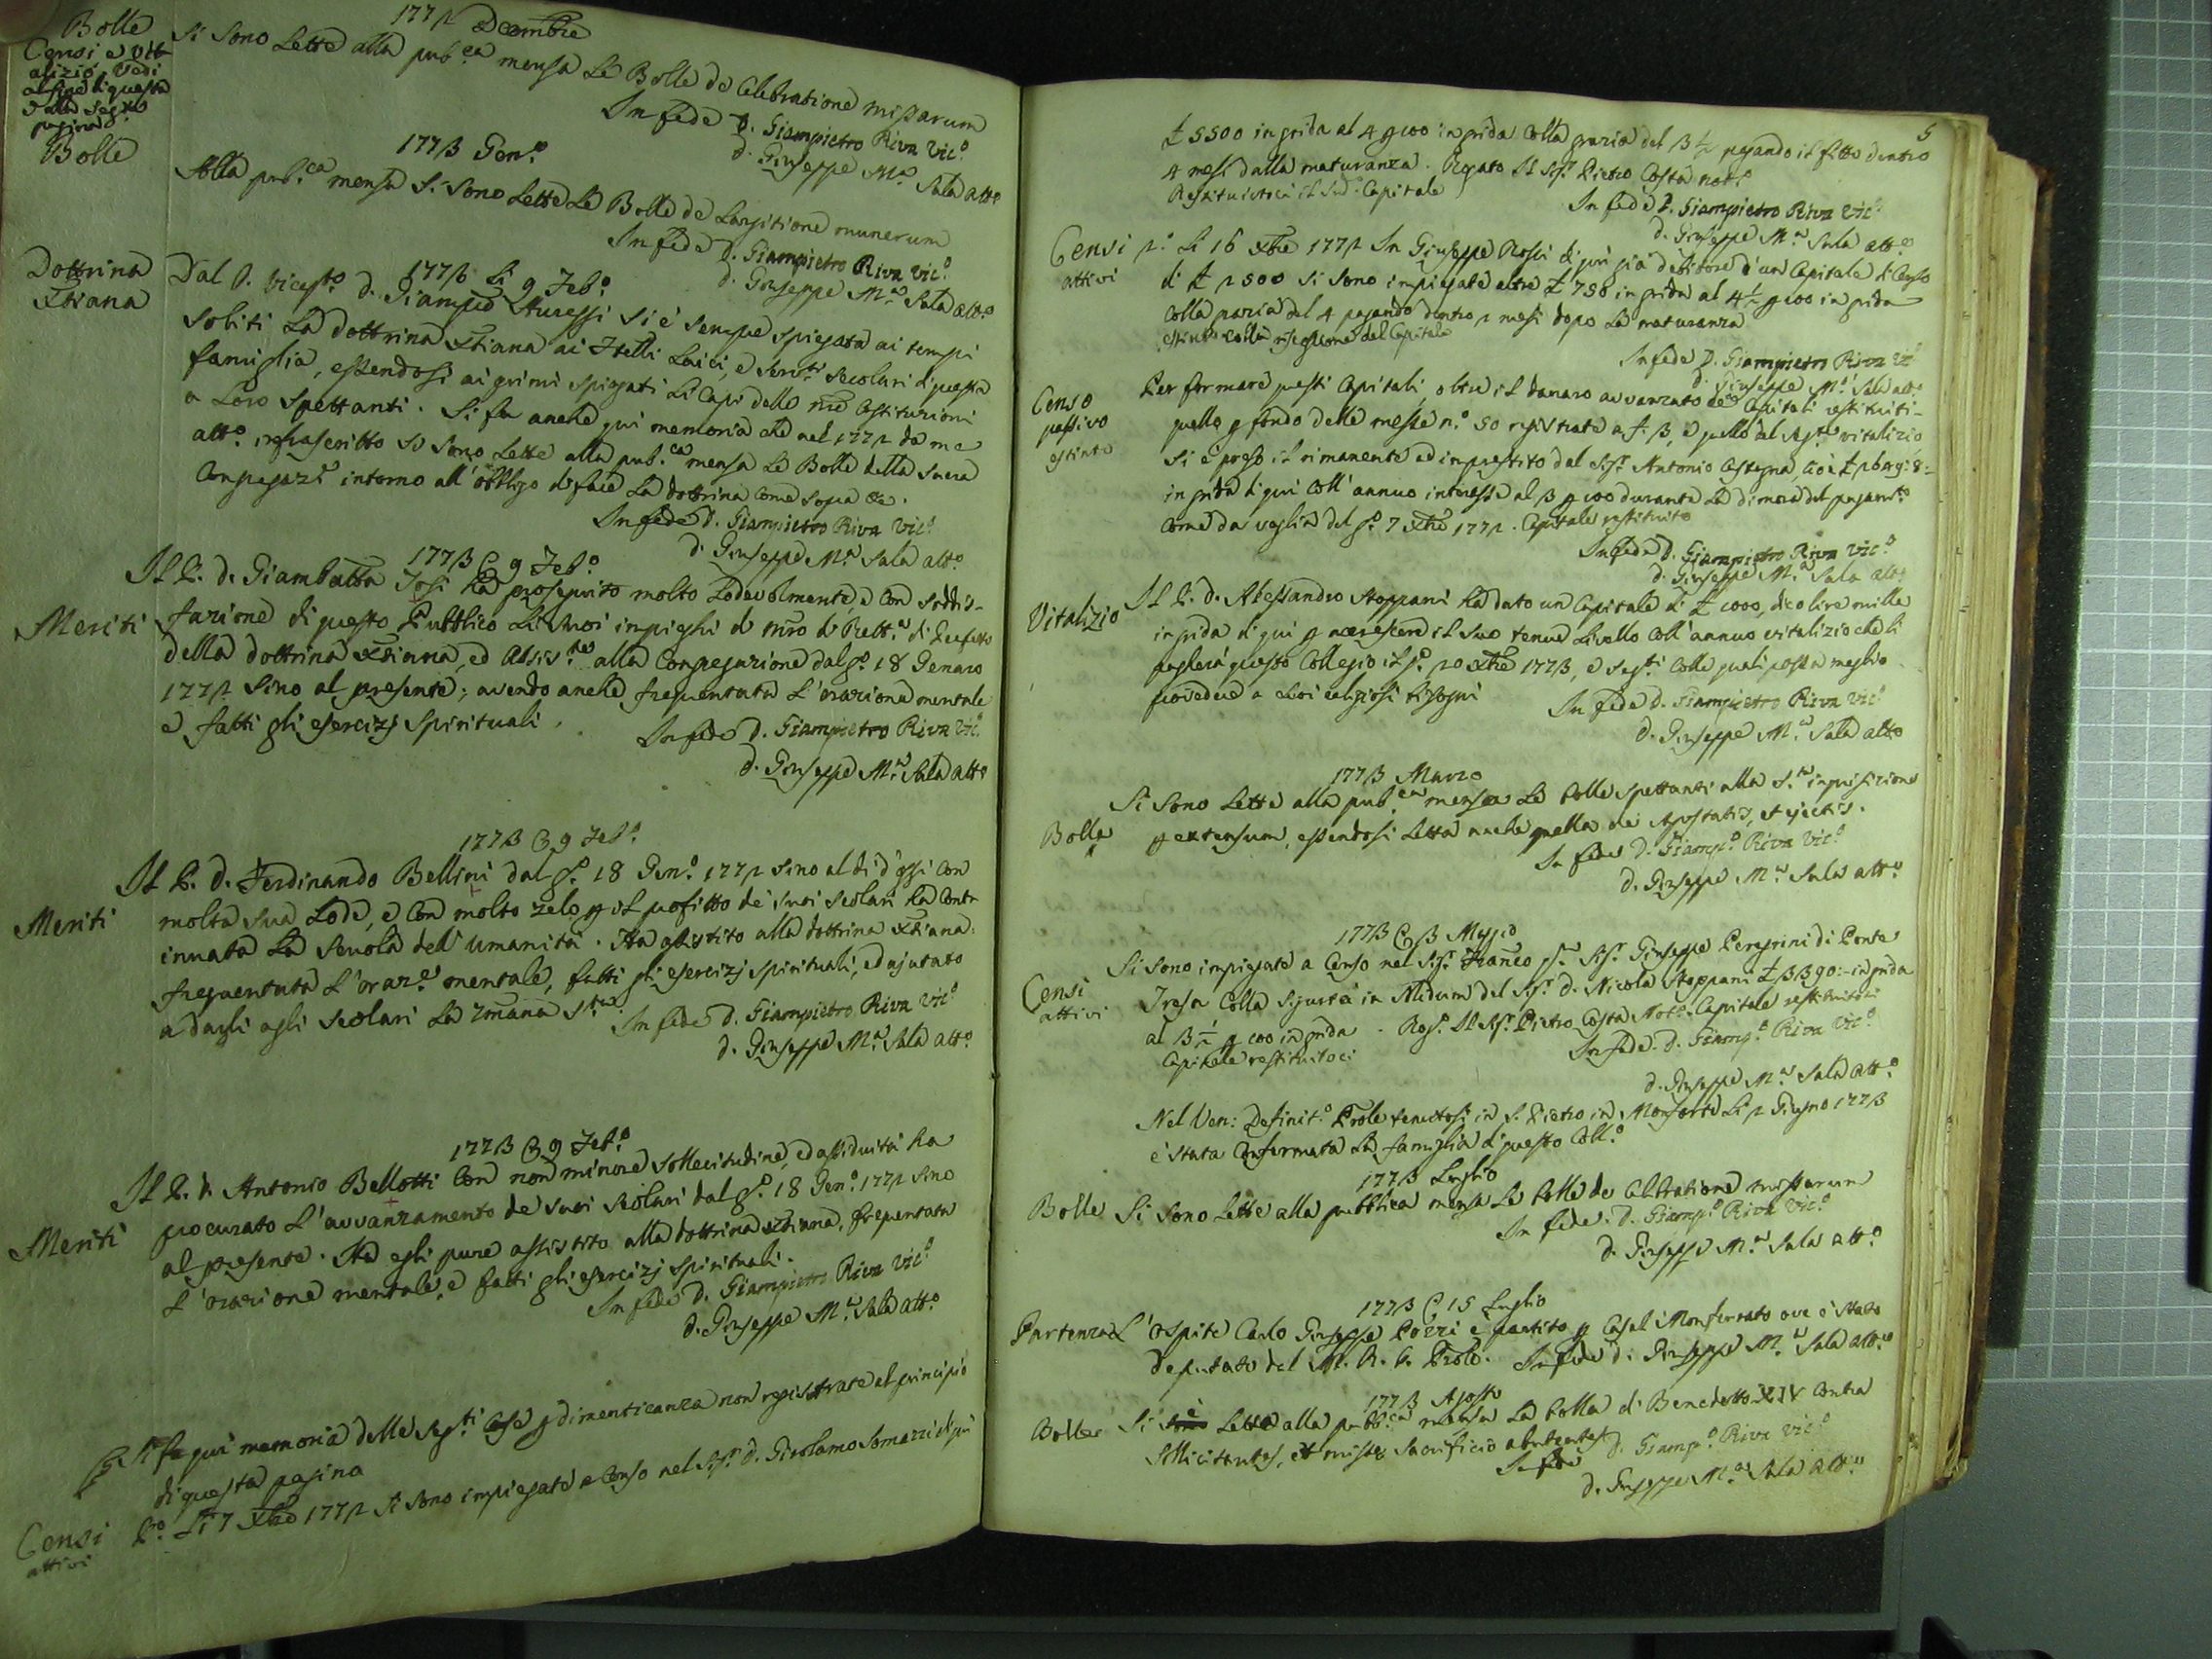 Bolle
Censi, e vit-
alizio. Vedi
al fine di questa
e alla segte
pagina
1772 Dcembre
Si sono Lette alla pub.ca mensa Le Bolle de Celebratione missarum
In fede D. Giampietro Riva Vic.o
d. Giuseppe M.a Sala att.o
Bolle
1773 Gen.o
Alla pub.ca mensa si sono Lette Le Bolle de Largitione munerum
In fede D. Giampietro Riva Vic.o
d. Giuseppe M.a Sala att.o
Dottrina
Xtiana
1773 Li 9 Feb.o
Dal P. Vicep.to d. Giamp.o Muressi si è sempre spiegata ai tempi
soliti La dottrina Xtiana ai Ftelli Laici, e serv.ti secolari di questa
famiglia, essendosi ai primi spiegati Li Capi delle nre Costituzioni
a Loro spettanti. Si fa anche qui memoria che nel 1772 da me
att.o infrascritto si sono Lette alla pub.ca mensa Le Bolle della Sacra
Congregaz.e intorno all'obbligo di fare La dottrina come sopra &c.
In fede D. Giampietro Riva Vic.o
d. Giuseppe M.a Sala att.o
Meriti
1773 9 Feb.o
Il P. d. Giambatta Fosi ha proseguito molto Lodevolmente, e con soddis-
fazione di questo Pubblico Li suoi impieghi di mro di Rett.a di Prefetto
della dottrina Xtiana, ed Assis.te alla Congregazione dal g.o 18 Genaro
1772 sino al presente; avendo anche frequentata L'orazione mentale
e fatti gli esercizj spirituali.
In fede D. Giampietro Riva Vic.o
d. Giuseppe M.a Sala att.o
Meriti
1773 9 Feb.o
Il P. d. Ferdinando Bellini dal g.o 18 Gen.o 1772 sino al dì d'oggi con
molta sua Lode, e con molto zelo p il profitto de' suoi scolari ha conti
innata La scuola dell'umanità. Ha assistito alla dottrina Xtiana:
frequentata L'oraz.e mentale, fatti gli esercizj spirituali, ed ajutato
a dargli agli scolari La 7mana S.ta
In fede D. Giampietro Riva Vic.o
d. Giuseppe M.a Sala att.o
Meriti
1773 9 Feb.o
Il P. d. Antonio Bellotti con non minore sollecitudine, ed assiduità ha
procurato L'avvanzamento de suoi scolari dal g.o 18 Gen.o 1772 sino
al presente. Ha egli pure assistito alla dottrina Xtiana, frequentata
L'orazione mentale, e fatti gli esercizj spirituali.
In fede D. Giampietro Riva Vic.o
d. Giuseppe M.a Sala att.o
Si fa qui memoria delle seg.ti Cose p dimenticanza non registrate al principio
di questa pagina
Censi
attivi
P.o Li 7 Xbre 1772 si sono impiegate a Censo nel Sig.r d. Girolamo Somazzi di qui
5
£ 5500 in grida al 4 p 100 in grida colla grazia del 3 1/2 pagando il fitto dentro
4 mesi dalla maturanza. Rogato Il Sig.r Pietro Costa not.o
Restituitoci il sud.o Capitale
In fede D. Giampietro Riva Vic.o
d. Giuseppe M.a Sala att.o
Censi
attivi
2.o Li 16 Xbre 1772 In Giuseppe Rossi di qui già debitore d'un Capitale di Censo
di £ 2500 si sono impiegate altre £ 750 in grida al 4 1/2 p 100 in grida
colla grazia del 4 pagando dentro 2 mesi dopo La maturanza
estinto colla del Capitale
In fede D. Giampietro Riva Vic.o
d. Giuseppe M.a Sala att.o
Censo
passivo
estinto
Per formare questi Capitali, oltre il danaro avvanzato de Capitali restituiti-
quello p fondo delle messe n.o 50 registrate a f. 3, e quello del seg.te vitalizio
si è preso il rimanente ad imprestito dal Sig.r Antonio Castagna, cioè £
in grida di qui coll'annuo interesse al 3 p 100 durante La dimora del pagam.to
come da veglia del g.o 7 Xbre 1772. Capitale restituito
In fede D. Giampietro Riva Vic.o
d. Giuseppe M.a Sala att.o
Vitalizio
Il P. d. Alessandro Stoppani ha dato un Capitale di £ 1000, dico lire mille
in grida di qui p accrescere il suo tenue Livello coll'annuo vitalizio che li
pagherà questo Collegio il g.o 20 Xbre 1773, e seg.ti colle quali possa meglio
provedere a suoi religiosi bisogni
In fede D. Giampietro Riva Vic.o
d. Giuseppe M.a Sala att.o
Bolle
1773 Marzo
Si sono Lette alla pub.ca mensa Le bolle spettanti alla S.ta inquisizione
p extensum, essendosi Letta anche quella de Apostatis, et ejectis.
In fede D. Giamp.o Riva Vic.o
d. Giuseppe M.a Sala att.o
Censi
attivi
1773 3 Maggio
Si sono impiegate a Censo nel Sig.r Franco q.m Sig.r Giuseppe Peregrini di Ponte
Tresa colla sigurtà in solidum del Sig.r D. Nicola Stoppani £ 3390:- in grida
al 3 1/2 p 100 in grida. Rog.o Il Sig.r Pietro Costa Not.o Capitale restituitoci
Capitale restituitoci
In fede D. Giamp.o Riva Vic.o
d. Giuseppe M.a Sala att.o
Nel Ven: Definit.o Prole tenutosi in S. Pietro in Monforte Li 2 Giugno 1773
è stata Confermata La famiglia di questo Coll.o
Bolle
1773 Luglio
Si sono Lette alla pubblica mensa Le bolle de Celebratione missarum
In fede D. Giamp.o Riva Vic.o
d. Giuseppe M.a Sala att.o
Partenza
1773 15 Luglio
L'ospite Carlo Giuseppe Pozzi è partito p Casal Monferrato ove è stato
deputato dal M. R. P. Prole. In fede d. Giuseppe M.a Sala att.o
Bolle
1773 Agosto
Si è Letta alla pubb.ca mensa La bolla di Benedetto XIV contra
sollicitantes, et missæ sacrificio abutentes
In fede D. Giamp.o Riva Vic.o
d. Giuseppe M.a Sala att.o